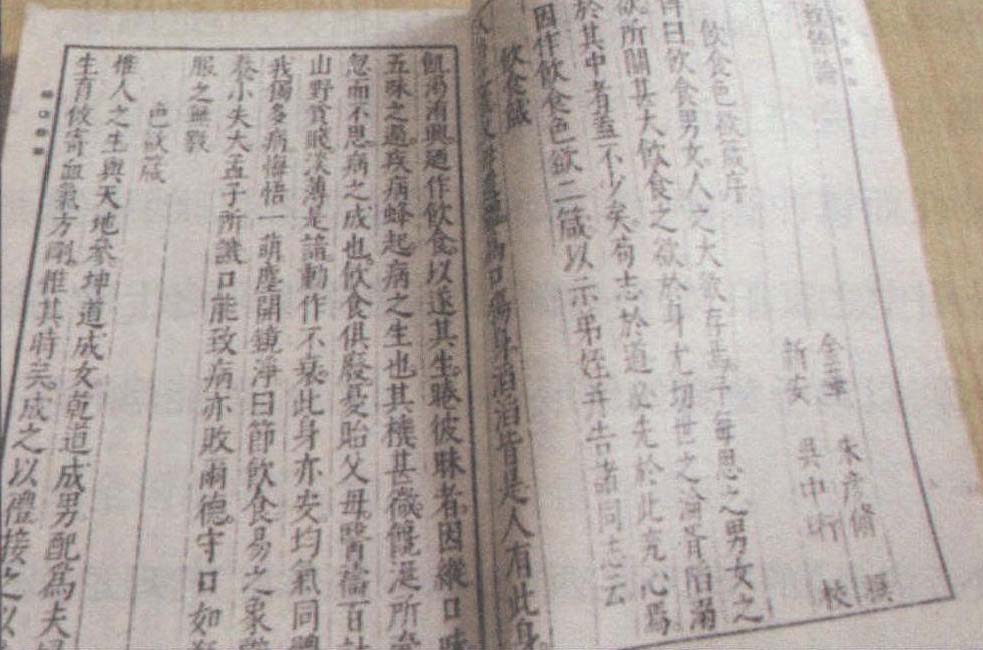 餘論
金華 朱彥脩 撰
新安 吳中珩 校
飲食色欲箴序
傳曰飲食男女人之大欲存焉予每思之男女之
欲所關甚大飲食之欲於身尤切世之淪胥陷溺
於其中者蓋不少矣苟志於道必先於此究心焉
因作飲食色欲二箴以示弟姪并告諸同志云
飲食箴
為口傷身滔滔皆是人有此身
飢渴洊興迺作飲食以遂其生睠彼昧者因縱口味
五味之過疾病蜂起病之生也其機甚微饞涎所
忽而不思病之成也飲食俱廢憂貽父母醫禱百計
山野貧賤淡薄是諳動作不衰此身亦安均氣同體
我獨多病悔悟一萌塵開鏡淨曰節飲食易之象
養小失大孟子所譏口能致病亦敗爾德守口如
服之無斁
色欲箴
惟人之生與天地參坤道成女乾道成男配為夫婦
生育攸寄血氣方剛惟其時矣成之以禮接之以